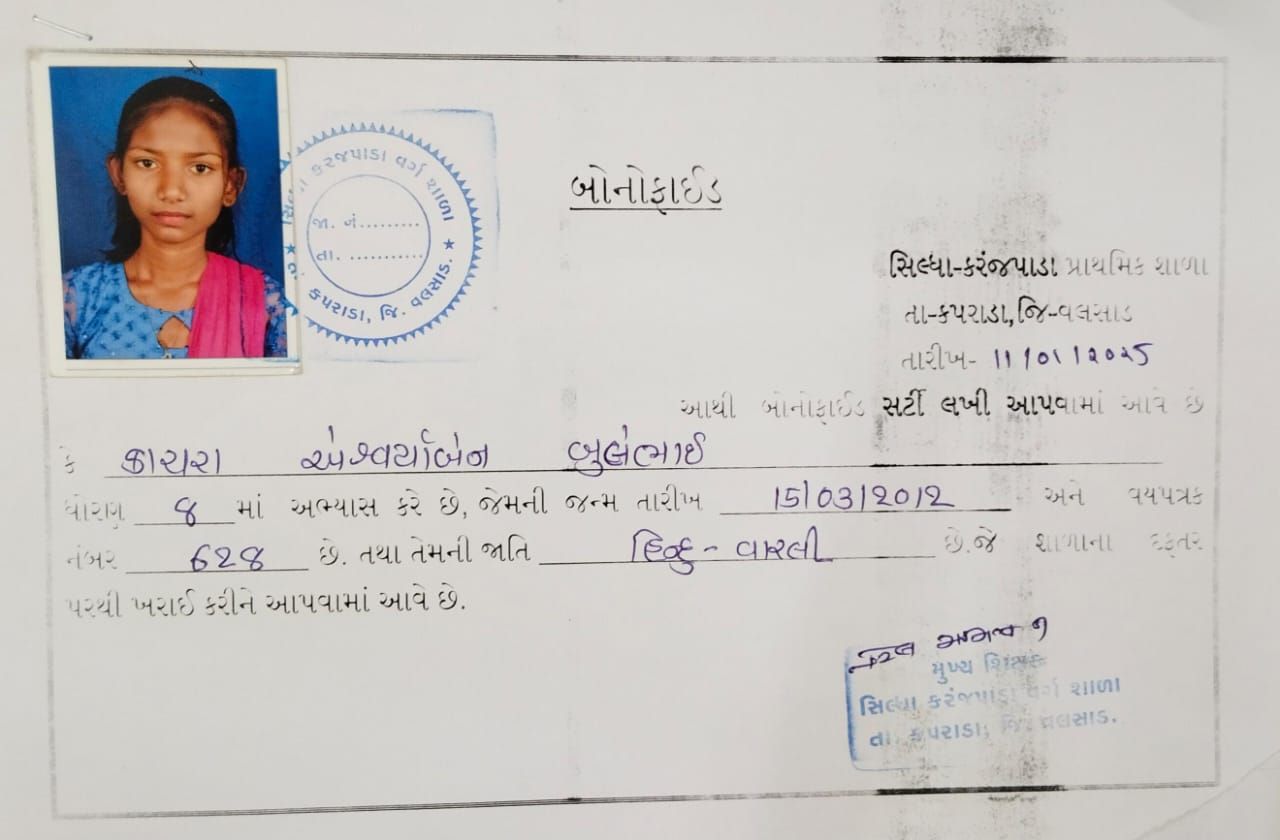 બોનોફાઈડ
કરંજપાડા વર્ગ શાળા
જા. નં.........
તા. ............
કપરાડા, જિ. વલસાડ.
સિલ્ધા-કરંજપાડા પ્રાથમિક શાળા
તા-કપરાડા,જિ-વલસાડ
તારીખ- 11/01/2025
આથી બોનોફાઈડ સર્ટી લખી આપવામાં આવે છે
કે કાચરા ઐશ્વર્યાબેન બુલેભાઈ
ધોરણ 8 માં અભ્યાસ કરે છે, જેમની જન્મ તારીખ 15/03/2012 અને વયપત્રક
નંબર 628 છે. તથા તેમની જાતિ હિન્દુ - વારલી છે.જે શાળાના દફતર
પરથી ખરાઈ કરીને આપવામાં આવે છે.
મુખ્ય શિક્ષક
સિલ્ધા કરંજપાડા વર્ગ શાળા
તા. કપરાડા, જિ. વલસાડ.